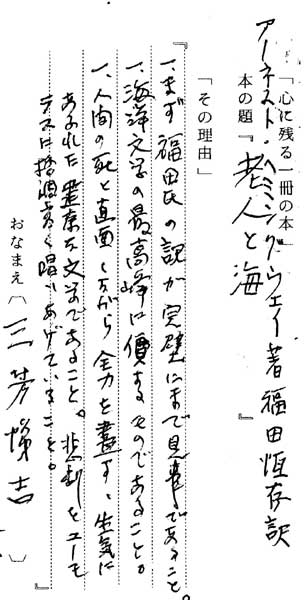 「心に残る一冊の本」
アーネスト・ヘミングウェイ著 福田恆存訳
本の題『老人と海』
「その理由」
『一、まず福田氏の訳が完璧にまで見事であること。
一、海洋文学の最高峰に價するものであること。
一、人間の死と直面しながら全力を盡す、生気に
あふれた 文学であること。悲劇をユーモ
ラスに 唱いあげていること。』
おなまえ( 三芳悌吉 )